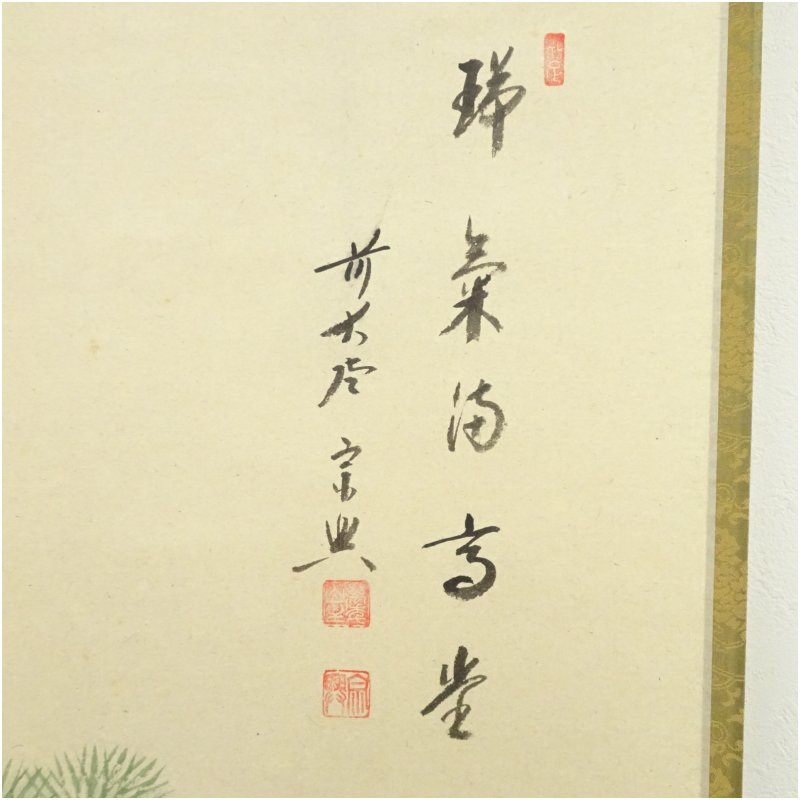 瑞氣満高堂
前大徳宗典